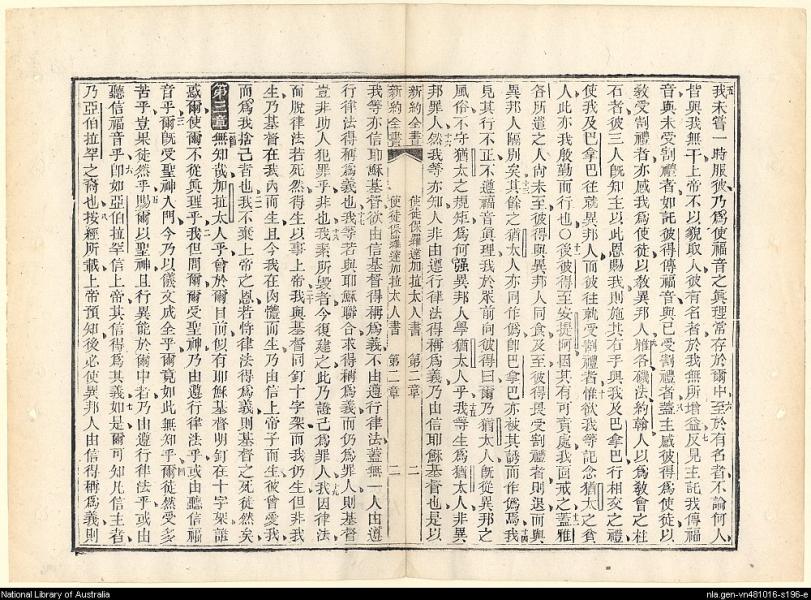 我未嘗一時服彼乃爲使福音之眞理常存於爾中至於有名者不論何人
皆與我無干上帝不以貌取人彼有名者於我無所增益反見主託我傳福
音與未受割禮者如託彼得傳福音與已受割禮者蓋主感彼得爲使徒以
敎受割禮者亦感我爲使徒以敎異邦人雅各磯法約翰人以爲敎會之柱
石者彼三人旣知主以此恩賜我則施其右手與我及巴拿巴行相交之禮
使我及巴拿巴往就異邦人而彼往就受割禮者惟欲我等記念猶太之貧
人此亦我慇勤而行也〇後彼得至安提阿因其有可責處我面戒之蓋雅
各所遣之人尚未至彼得與異邦人同食及至彼得畏受割禮者則退而與
異邦人隔別矣其餘之猶太人亦同作僞卽巴拿巴亦被其誘而作僞焉我
見其行不正不遵福音眞理我於衆前向彼得曰爾乃猶太人旣從異邦之
風俗不守猶太之規矩爲何强異邦人學猶太人乎我等生爲猶太人非異
邦罪人然我等亦知人非由遵行律法得稱爲義乃由信耶穌基督也是以
新約全書 使徒保羅達加拉太人書 第二章 二
新約全書 使徒保羅達加拉太人書 第二章 二
我等亦信耶穌基督欲由信基督得稱爲義不由遵行律法蓋無一人由遵
行律法得稱爲義也我等若與耶穌聯合求得稱爲義而仍爲罪人則基督
豈非助人犯罪乎非也我素所毀者今復建之此乃證己爲罪人我因律法
而脫律法若死然得生以事上帝我與基督同釘十字架而我仍生但非我
生乃基督在我內而生且今我在肉體而生乃由信上帝子而生彼曾愛我
而爲我捨己者也我不棄上帝之恩若恃律法得爲義則基督之死徒然矣
第三章無知哉加拉太人乎耶穌基督明釘在十字架
惑爾使爾不從眞理乎我但問爾爾受聖神乃由遵行律法乎或由聽信福
音乎爾旣受聖神入門今乃以儀文成全乎爾竟如此無知乎爾徒然受多
苦乎豈果徒然乎賜爾以聖神且行異能於爾中者乃由遵行律法乎或由
聽信福音乎卽如亞伯拉罕信上帝其信得爲其義如是爾可知凡信主者
乃亞伯拉罕之裔也按經所載上帝預知後必使異邦人由信得稱爲義則
National Library of Australia
nla.gen-vn481016-s196-e